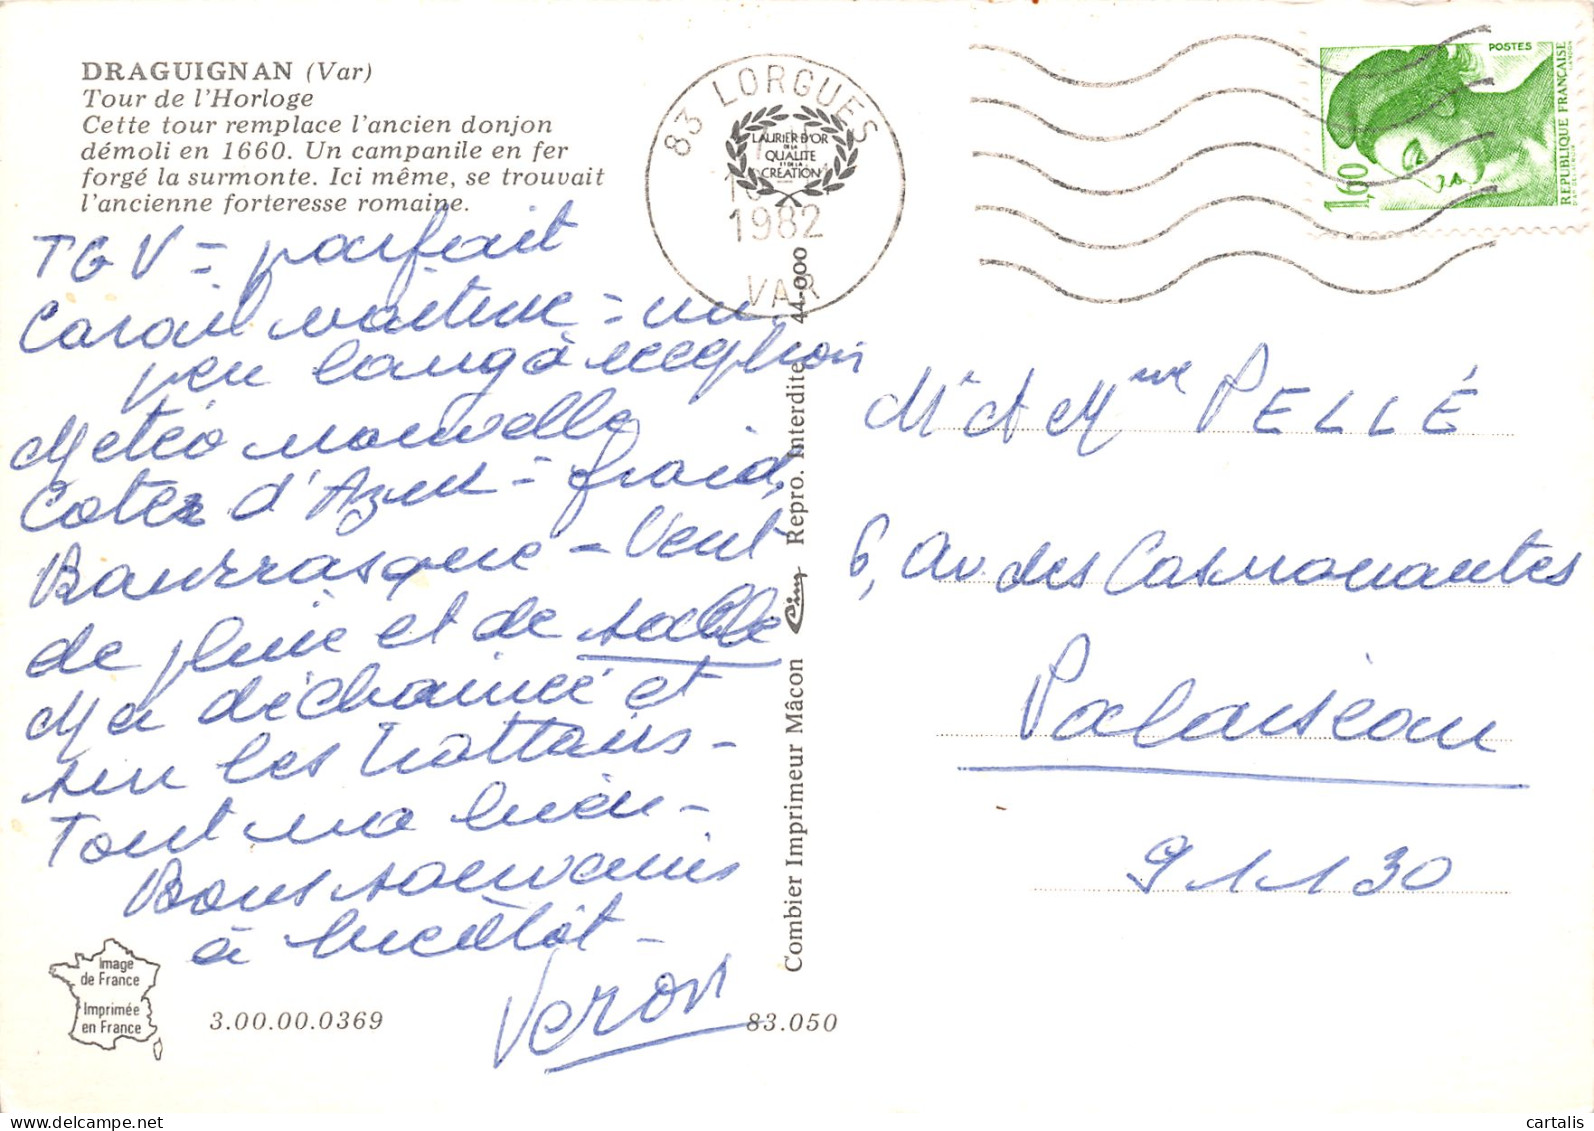 DRAGUIGNAN (Var)
Tour de l'Horloge
Cette tour remplace l'ancien donjon
démoli en 1660. Un campanile en fer
forgé la surmonte. Ici même, se trouvait
l'ancienne forteresse romaine.
TGV = parfait
= un
peu long à réception
Météo nouvelle
Cotes d'Azur = froid,
Bourrasque - Vent
de pluie et de sable
Mer déchainée et
sur les trottoirs -
Tout va bien -
Bons souvenirs
à bientôt -
Veron
Image
de France
Imprimée
en France
3.00.00.0369
83.050
Combier Imprimeur Mâcon Cim Repro. Interdite 44-000
83 LORGUES
1982
VAR
LAURIER D'OR
DE LA
QUALITE
ET DE LA
CREATION
POSTES
1,60
REPUBLIQUE FRANÇAISE
Mr et Mme PELLÉ
6, Av. des Casmonantes
Palaiseau
91130
cartalis